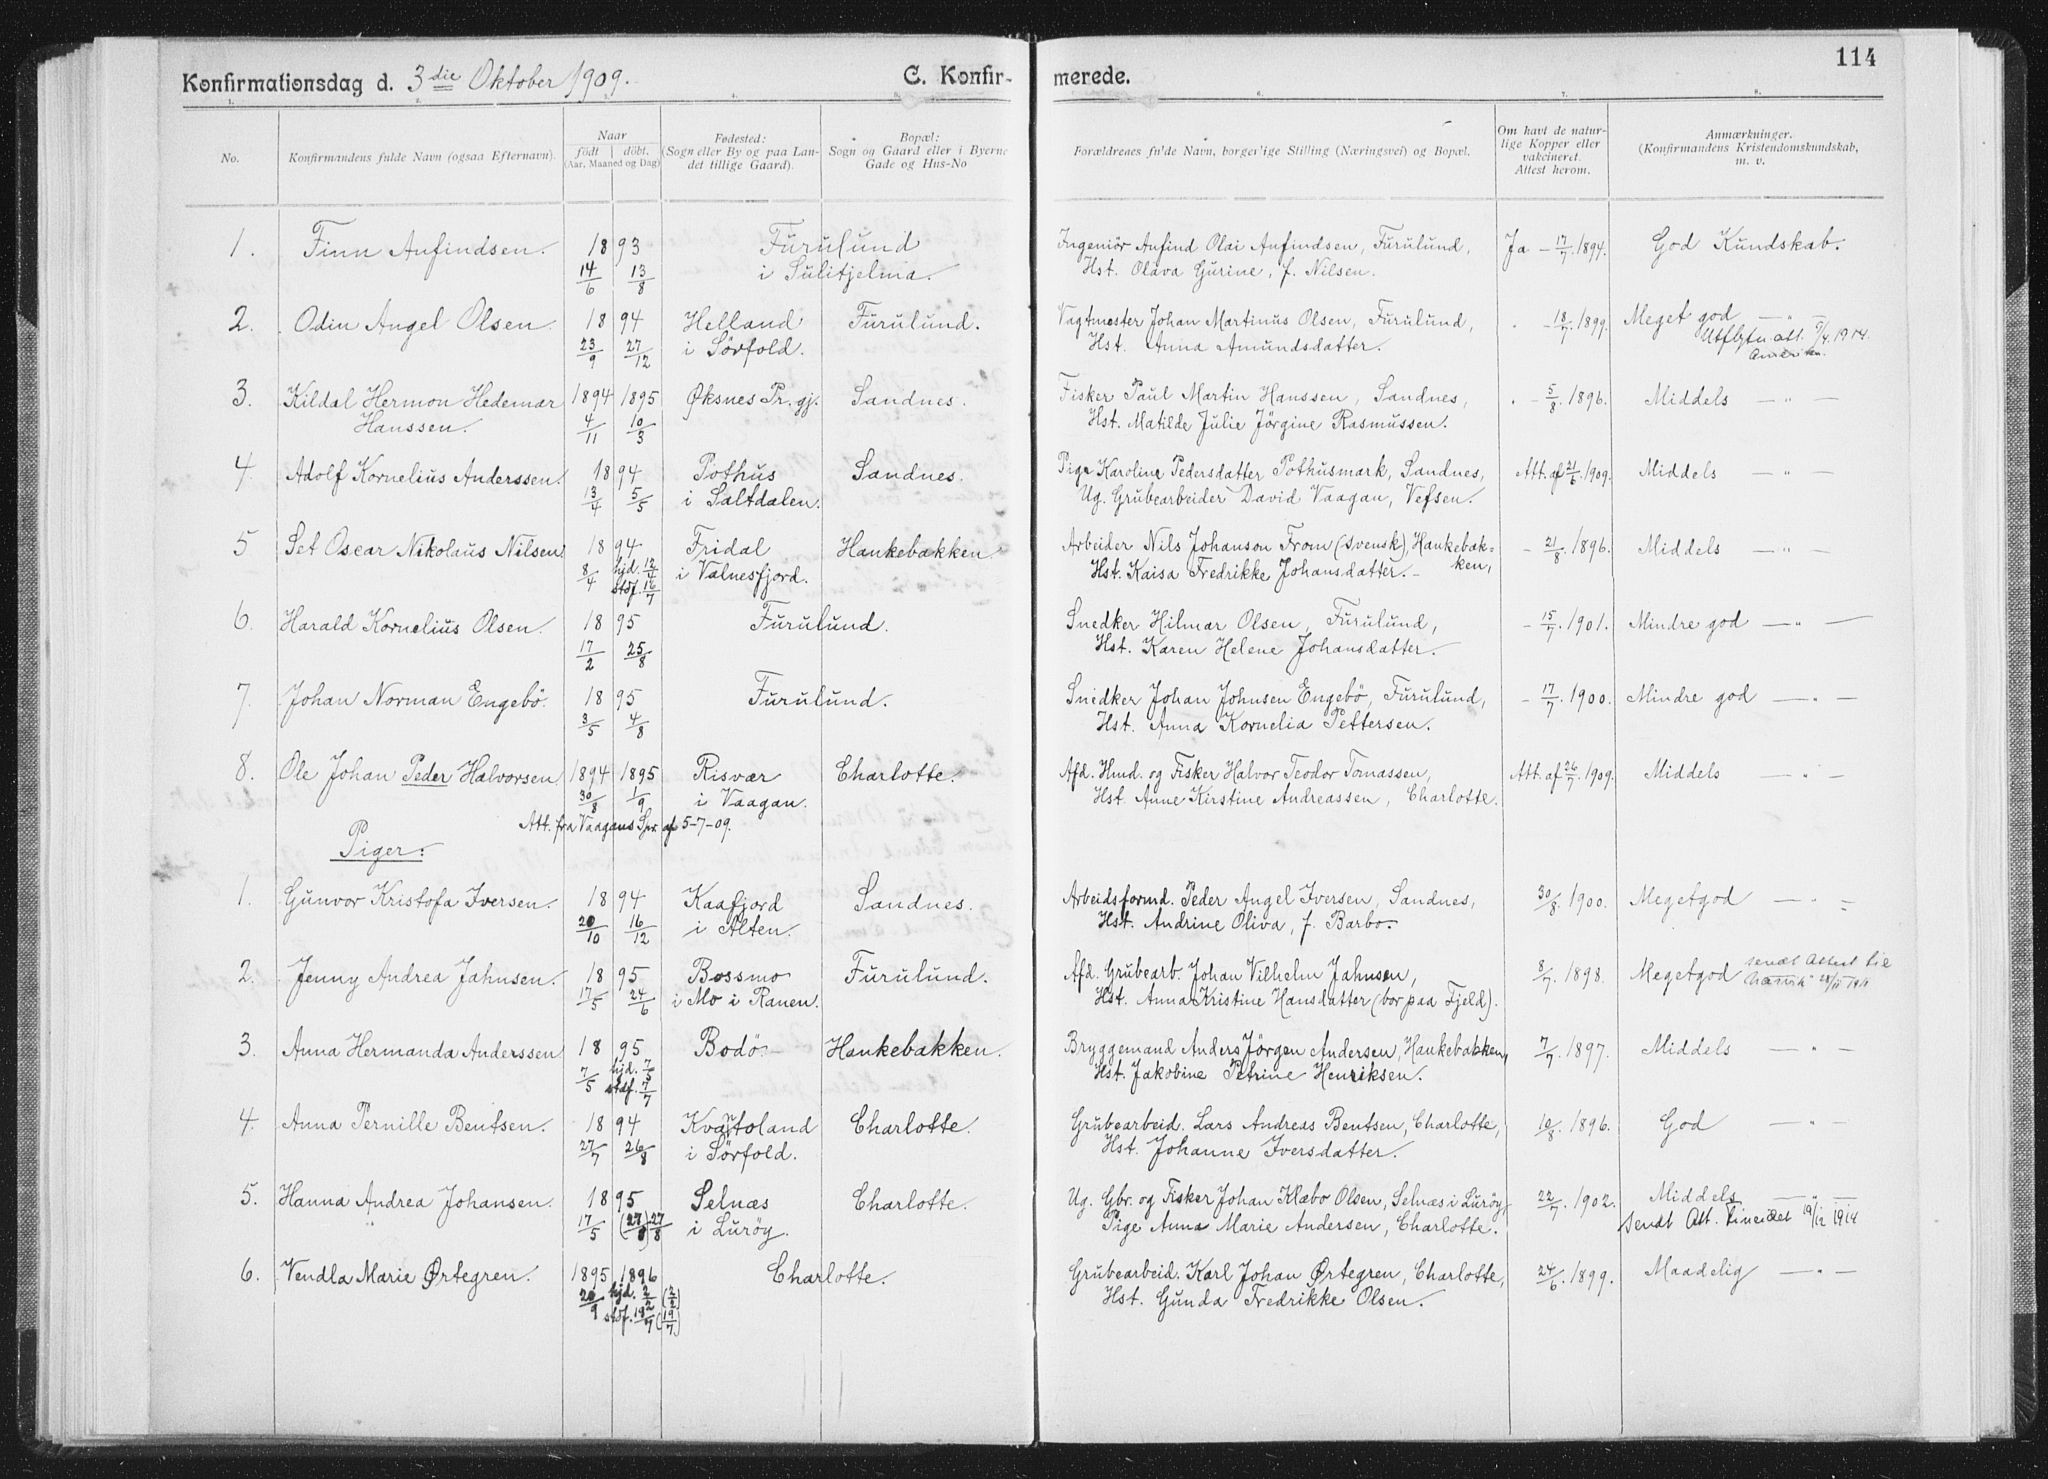 114
Konfirmationsdag d. 3die Oktober 1909. C. Konfirmerede.
1. 2. 3. 4. 5. 6. 7. 8.
No.
Konfirmandens fulde Navn (ogsaa Efternavn).
Naar
födt | döbt.
(Aar, Maaned og Dag)
Fødested:
(Sogn eller By og paa Lan-
det tillige Gaard).
Bopæl:
Sogn og Gaard eller i Byerne
Gade og Hus-No
Forældrenes fulde Navn, borgerlige Stilling (Næringsvei) og Bopæl.
Om havt de natur-
lige Kopper eller
vakcineret.
Attest herom.
Anmærkninger.
(Konfirmandens Kristendomskundskab,
m. v.
1. Finn Anfindsen. 1893 Furulund Ingeniör Anfind Olai Anfindsen, Furulund, Ja – 17/7. 1894. God Kundskab.
14/6 13/8 i Sulitjelma. Hst. Olava Gurine, f. Nilsen.
2. Odin Angel Olsen. 1894 Helland Furulund. Vagtmester Johan Martinus Olsen, Furulund, " – 18/7. 1899. Meget god — " —
23/9 27/12 i Sörfold. Hst. Anna Amundsdatter. Utflytn. att. /4. 1914.
Amerika.
3. Kildal Hermon Hedemar 1894 1895 Øksnes Pr.gj. Sandnes. Fisker Paul Martin Hanssen, Sandnes, " – 5/8. 1896. Middels — " —
Hanssen. 4/11 10/3 Hst. Matilde Julie Jörgine Rasmussen.
4. Adolf Kornelius Anderssen. 1894 Pothus Sandnes. Pige Karoline Pedersdatter Pothusmark, Sandnes, Att. af 21/6. 1909. Middels — " —
13/4 5/5 i Saltdalen. Ug. Grubearbeider David Vaagan, Vefsen.
5 Set Oscar Nikolaus Nilsen. 1894 Fridal Hankebakken. Arbeider Nils Johanson From (svensk), Hankebak= – 21/8. 1896. Middels — " —
8/4 hjd. 12/4 i Valnesfjord. Hst. Kaisa Fredrikke Johansdatter. – ken,
stdf. 16/7
6. Harald Kornelius Olsen. 1895 Furulund. Snedker Hilmar Olsen, Furulund, – 15/7. 1901. Mindre god — " —
17/2 25/8 Hst. Karen Helene Johansdatter.
7. Johan Norman Engebö. 1895 Furulund. Snedker Johan Johnsen Engebö, Furulund, – 17/7. 1900. Mindre god — " —
3/5 4/8 Hst. Anna Kornelia Pettersen.
8. Ole Johan Peder Halvorsen 1894 1895 Risvær Charlotte. Afd. Hmd. og Fisker Halvor Teodor Tomassen, Att. af 26/7. 1909. Middels — " —
30/8 1/9 i Vaagan. Hst. Anne Kirstine Andreassen, Charlotte.
Att. fra Vaagans Spr. af 5-7-09.
Piger:
1. Gunvor Kristofa Iversen. 1894 Kaafjord Sandnes. Arbeidsformd. Peder Angel Iversen, Sandnes, 30/8. 1900. Megetgod — " —
20/10 16/12 i Alten. Hst. Andrine Oliva, f. Barbo.
2. Jenny Andrea Jahnsen. 1895 Bossmo Furulund. Afd. Grubearb. Johan Vilhelm Jahnsen, 8/7. 1898. Megetgod sendt Attest til
17/5 24/6 i Mo i Ranen. Hst. Anna Kristine Hansdatter (bor paa Fjeld). Narvik
3. Anna Hermanda Anderssen 1895 Bodö. Hankebakken. Bryggemand Anders Jörgen Andersen, Hankebakken, 7/7. 1897. Middels — " —
7/5 hjd. 7/5 Hst. Jakobine Petrine Henriksen.
stdf. 7/7
4. Anna Pernille Bentsen. 1894 Kvantoland Charlotte. Grubearbeid. Lars Andreas Bentsen, Charlotte, 10/8. 1896. God — " —
27/7 26/8 i Sörfold. Hst. Johanne Iversdatter.
5. Hanna Andrea Johansen. 1895 Selnæs Charlotte. Ug. Gbr. og Fisker Johan Klæbo Olsen, Selnæs i Luröy, 22/7. 1902. Middels — " —
17/5 (27/8) 27/8 i Luröy. Pige Anna Marie Andersen, Charlotte. Sendt Att. Fineidet 19/12 1914
6. Vendla Marie Örtegren. 1895 1896 Charlotte. Grubearbeid. Karl Johan Örtegren, Charlotte, 24/6. 1899. Maadelig — " —
20/9 hjd. 2/2 (2/2) Hst. Gunda Fredrikke Olsen.
stdf. 19/7 (19/7)